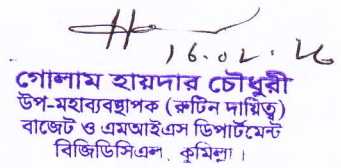 ১৬.০২.২৬
গোলাম হায়দার চৌধুরী
উপ-মহাব্যবস্থাপক (রুটিন দায়িত্ব)
বাজেট ও এমআইএস ডিপার্টমেন্ট
বিজিডিসিএল, কুমিল্লা।